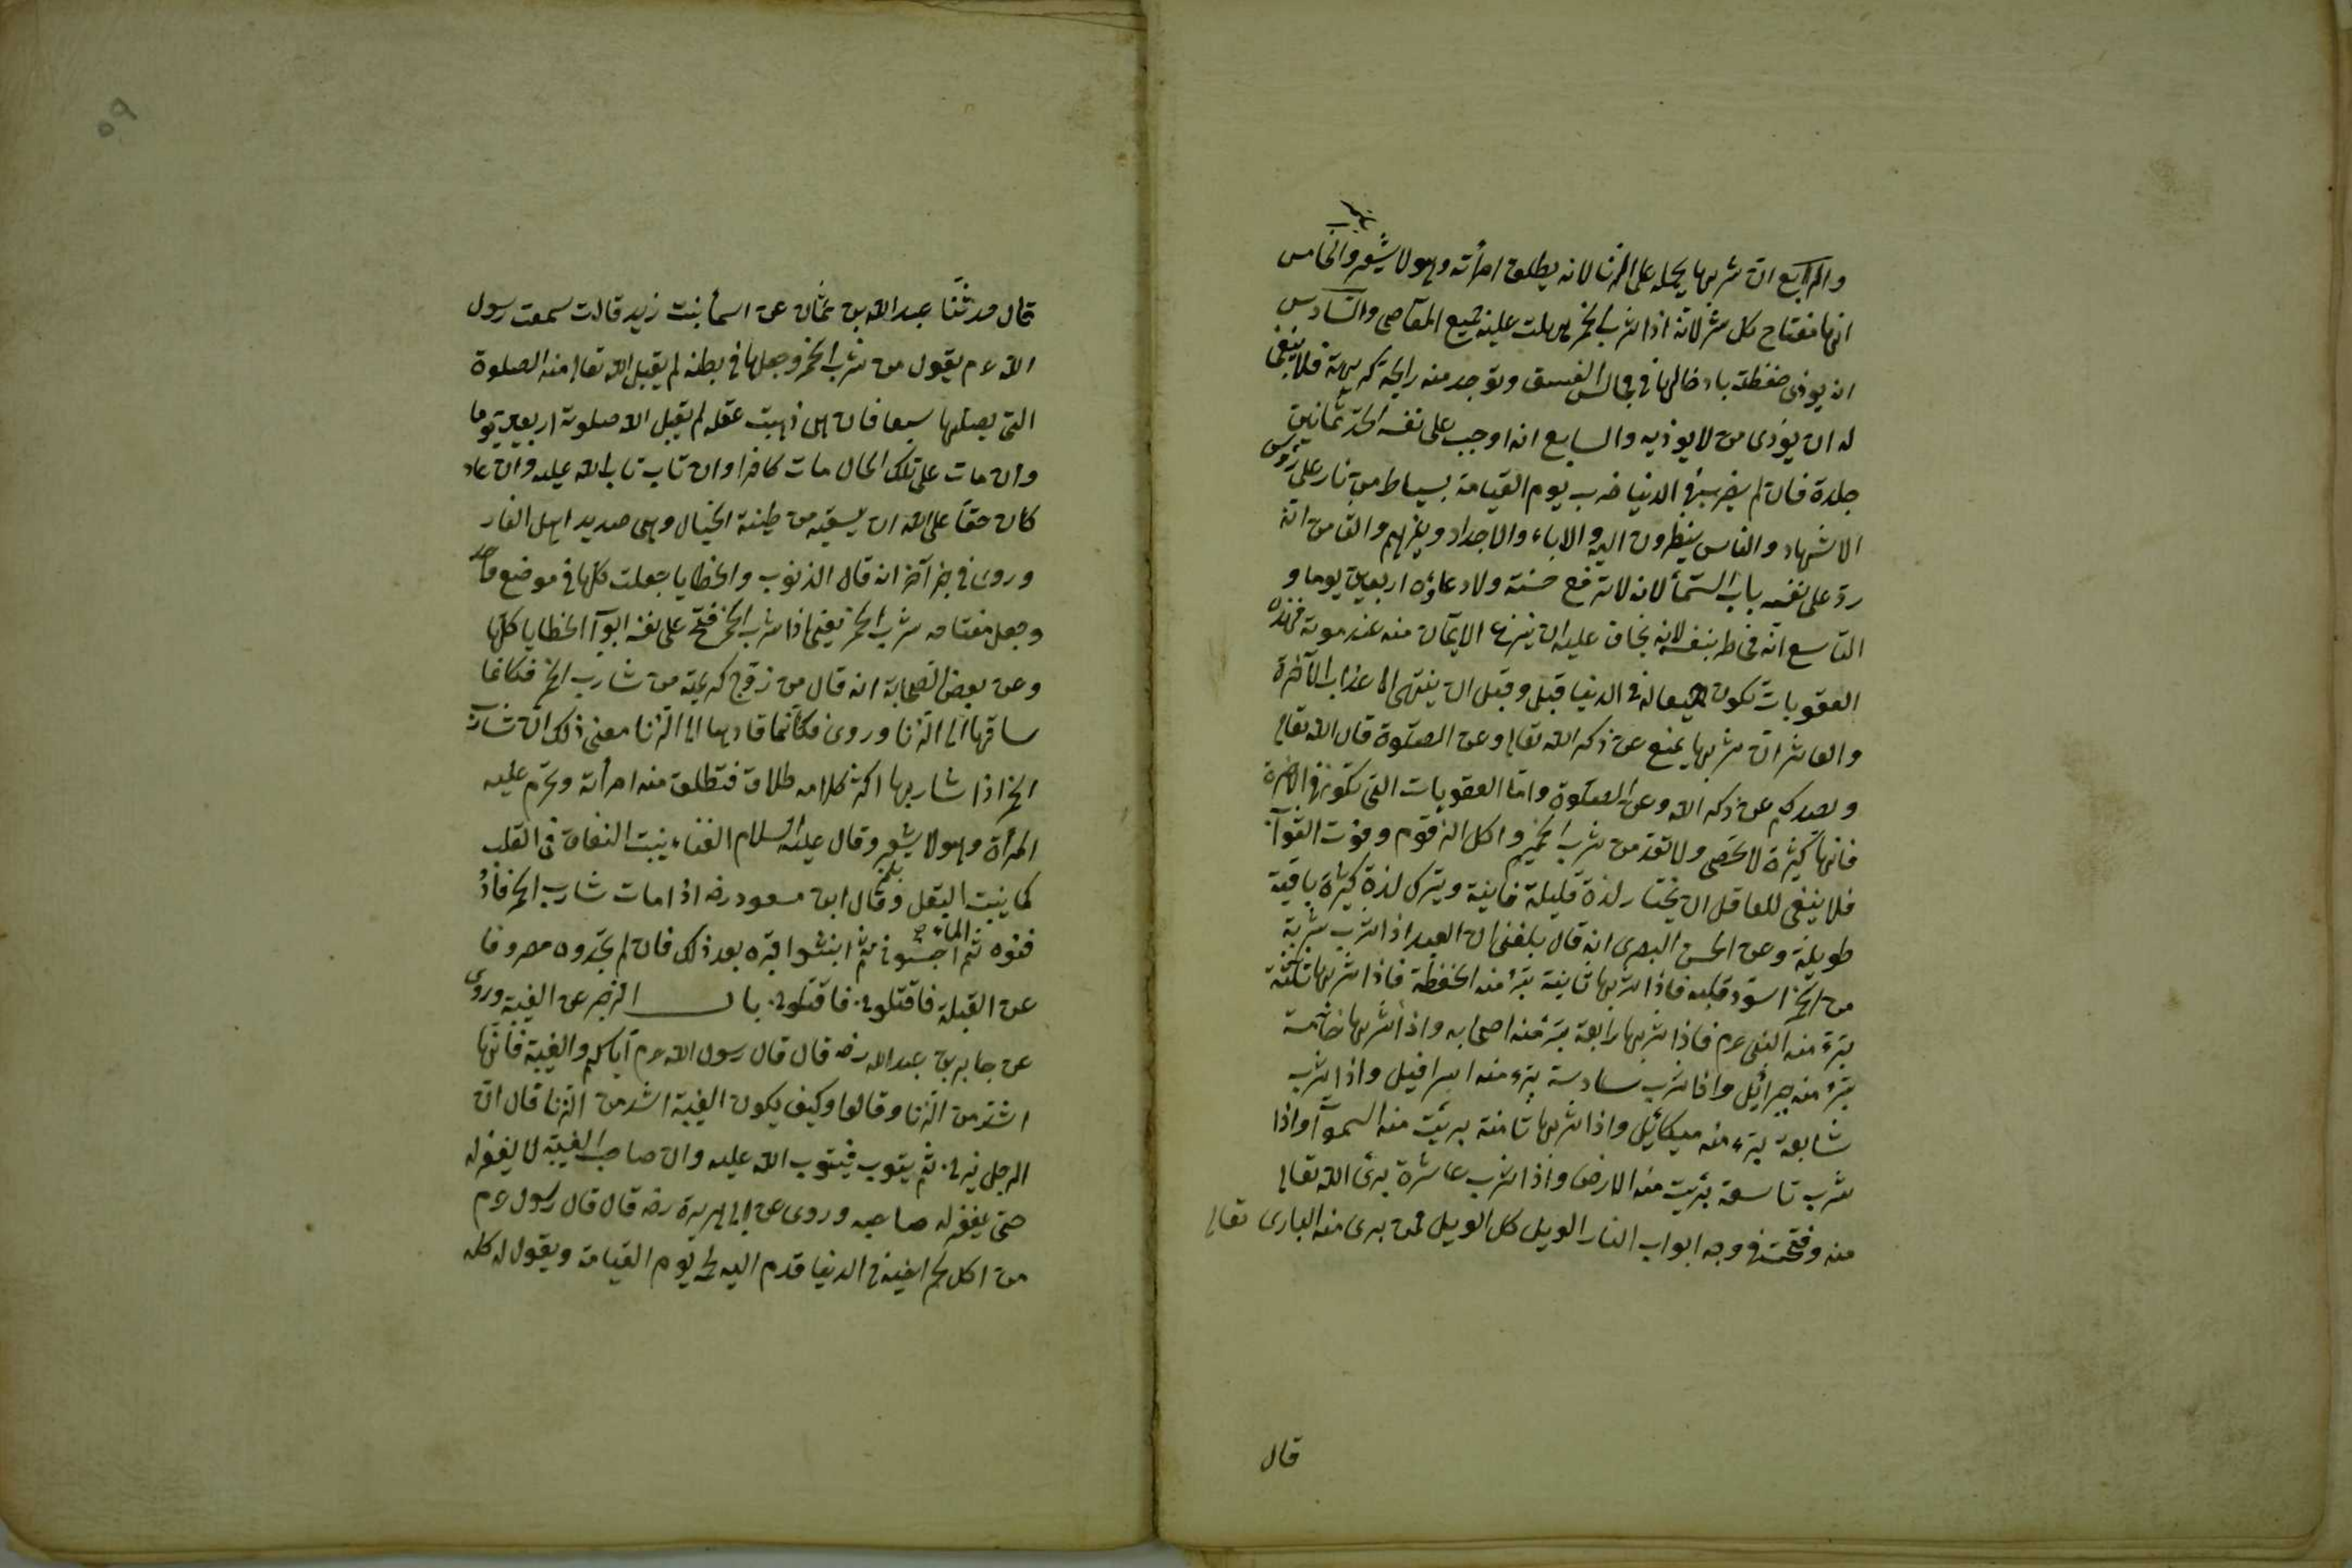 والرابع ان شربها يحمله على الزنا لانه يطلق امرأته وهو لا يشعر والخامس
انها مفتاح كل شر لانه اذا شرب الخمر سهلت عليه جميع المعاصي والسادس
ان يوذى حفظته بادخالها في مجالس الفسق وتوجد منه رايحة كريهة فلا ينبغى
له ان يؤذى من لا يوذيه والسابع انه اوجب على نفسه الحد ثمانين
جلدة فان لم يضرب في الدنيا ضرب يوم القيامة بسياط من نار على رؤس
الاشهاد والناس ينظرون اليه والاباء والاجداد وغيرهم والثامن انه
رد على نفسه باب السمآ لانه لا ترفع حسنته ولا دعاؤه اربعين يوما و
التاسع انه مخاطر بنفسه لانه يخاف عليه ان ينزع الايمان منه عند موته فهذه
العقوبات تكون في الدنيا قبل وقبل ان ينتهى الى عذاب الآخرة
والعاشر ان شربها يمنع عن ذكر الله تعالى وعن الصلوة قال الله تعالى
ويصدكم عن ذكر الله وعن الصلوة واما العقوبات التى تكون في الاخرة
فانها كثيرة لا تحصى ولا تعد من شرب الحميم واكل الزقوم وفوت الثوآب
فلا ينبغى للعاقل ان يختار لذة قليلة فانية ويترك لذة كثيرة باقية
طويلة وعن الحسن البصرى انه قال بلغنى ان العبد اذا شرب شربة
من الخمر اسود قلبه فاذا شربها ثانية تبرأ منه الحفظة فاذا شربها ثلثة
تبرء منه النبى عم فاذا شربها رابعة تبرء منه اصحابه واذا شربها خامسة
تبرء منه جبرائيل واذا شرب سادسة تبرء منه اسرافيل واذا شرب
سابعة تبرء منه ميكائيل واذا شربها ثامنة برئت منه السموآ واذا
شرب تاسعة برئت منه الارض واذا شرب عاشرة برئ الله تعالى
منه وفتحت في وجه ابواب النار الويل كل الويل لمن برى منه البارى تعالى
قال
٥٩
قال حدثنا عبد الله بن عثمان عن اسمآ بنت زيد قالت سمعت رسول
الله عم يقول من شرب الخمر وجعلها في بطنه لم يقبل الله تعالى منه الصلوة
التى يصليها سبعا فان هى ذهبت عقله لم يقبل الله صلوته اربعين يوما
وان مات على تلك الحال مات كافرا وان تاب تاب الله عليه وان عاد
كان حقا على الله ان يسقيه من طينة الخبال وهى صديد اهل النار
وروى في خبر آخر انه قال الذنوب والخطايا جعلت كلها في موضع واحد
وجعل مفتاحه شرب الخمر يعنى اذا شرب الخمر فتح على نفسه ابوآ الخطايا كلها
وعن بعض الصحابة انه قال من زوج كريمته من شارب الخمر فكانما
ساقها الى الزنا وروى فكأنما قادها الى الزنا معنى ذلك ان شارب
الخمر اذا شاربها اكثر كلامه طلاق فتطلق منه امرأته وتحرم عليه
المرأة وهو لا يشعر وقال عليه السلام الغناء ينبت النفاق في القلب
كما ينبت البقل وقال ابن مسعود رضه اذا مات شارب الخمر فاد
الماء
فنوه ثم ثم انبشوا قبره بعد ذلك فان لم تجدوه مصروفا
عن القبلة فاقتلونى فاقتلونى باب الزجر عن الغيبة وروى
عن جابر بن عبد الله رضه قال قال رسول الله عم اياكم والغيبة فانها
اشد من الزنا وقالوا وكيف يكون الغيبة اشد من الزنا قال ان
الرجل يزنى ثم يتوب فيتوب الله عليه وان صاحب الغيبة لا يغفر له
حتى يغفر له صاحبه وروى عن ابى هريرة رضه قال قال رسول عم
من اكل لحم اخيه في الدنيا قدم اليه لحمه يوم القيامة ويقول له كله